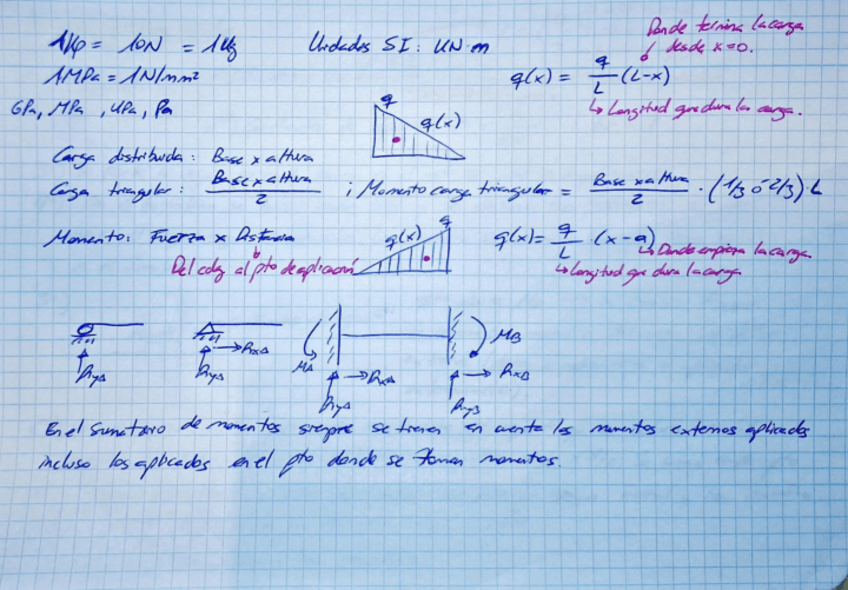 1Kp = 10N = 1Kg
Unidades SI: KN·m
Donde termina la carga
desde x=0.
1MPa = 1N/mm²
q(x) = q/L (L-x)
↳ Longitud que dura la carga.
GPa, MPa, KPa, Pa
q
q(x)
Carga distribuida: Base x altura
Carga triangular: Base x altura / 2 ; Momento carga triangular = Base x altura / 2 · (1/3 ó 2/3)·L
Momento: Fuerza x Distancia
Del cdg al pto de aplicación
q(x)
q
q(x) = q/L · (x-a)
↳ Donde empieza la carga.
↳ Longitud que dura la carga
RyA
RyA
RxA
MA
RyA
RxA
RyB
RxB
MB
En el sumatorio de momentos siempre se tienen en cuenta los momentos externos aplicados
incluso los aplicados en el pto donde se toman momentos.